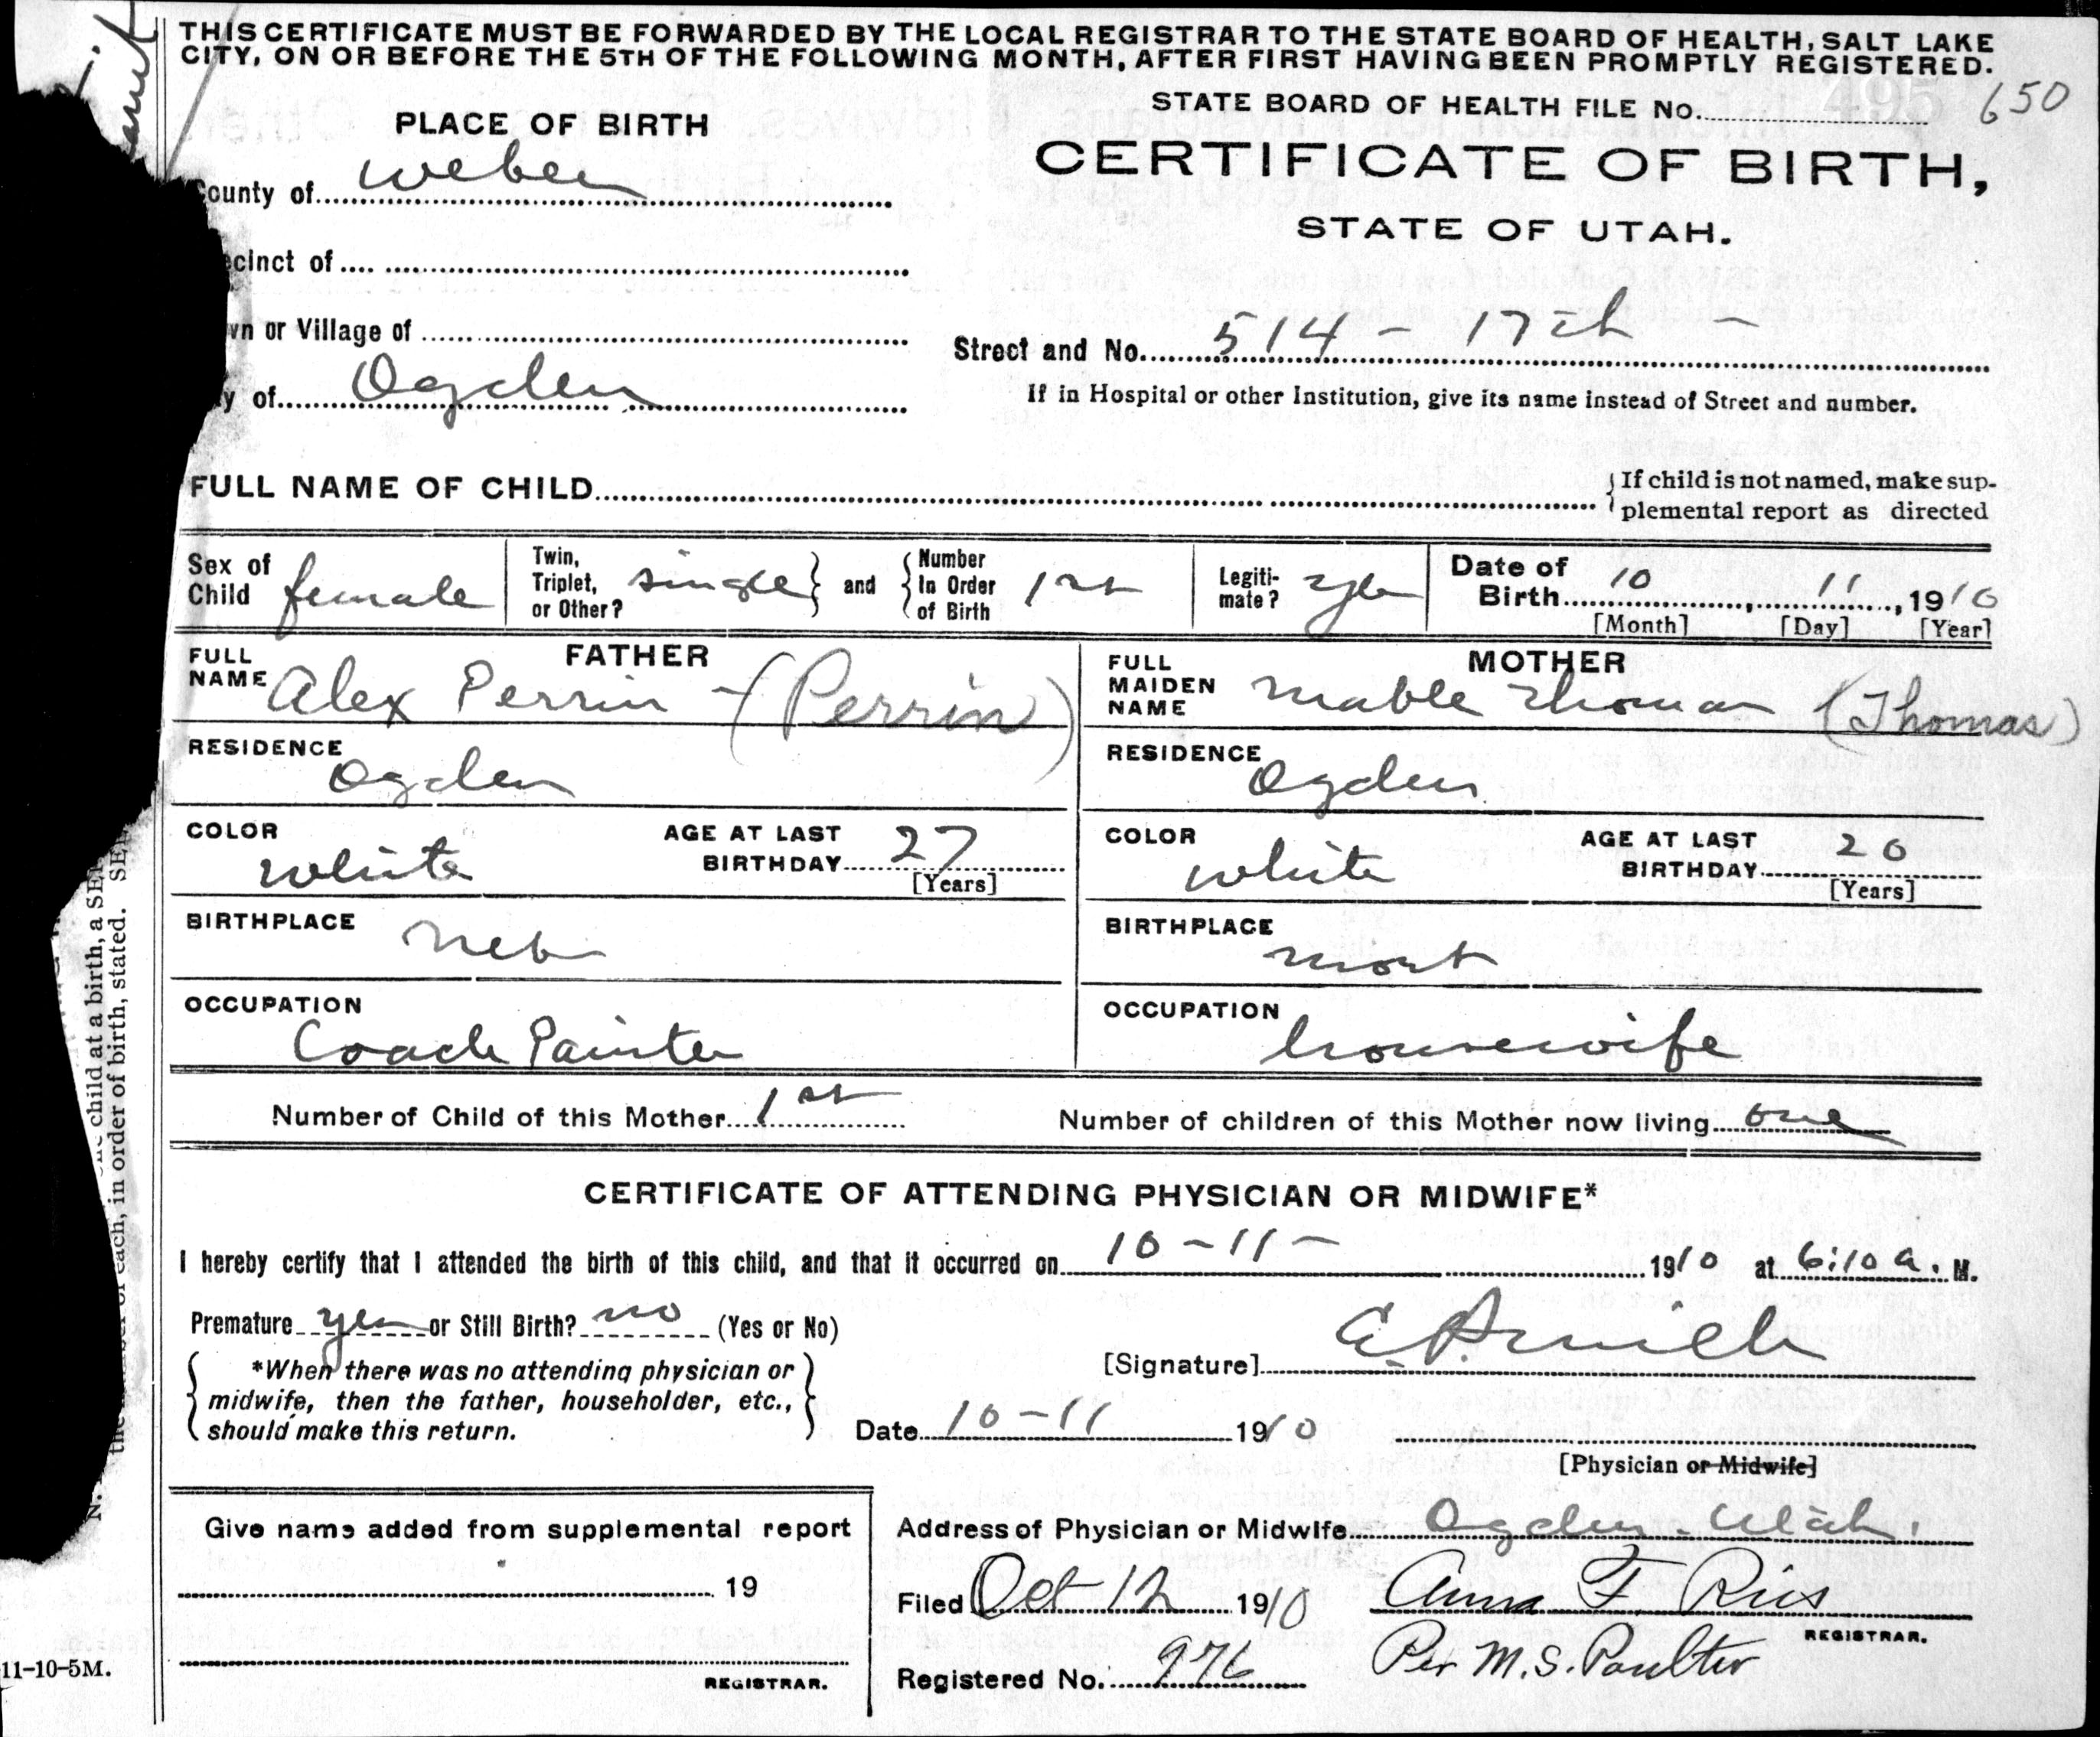 THIS CERTIFICATE MUST BE FORWARDED BY THE LOCAL REGISTRAR TO THE STATE BOARD OF HEALTH, SALT LAKE
CITY, ON OR BEFORE THE 5TH OF THE FOLLOWING MONTH, AFTER FIRST HAVING BEEN PROMPTLY REGISTERED.
STATE BOARD OF HEALTH FILE No. 495 650
PLACE OF BIRTH
CERTIFICATE OF BIRTH,
STATE OF UTAH.
County of Weber
ecinct of
wn or Village of
Street and No. 514 - 17th -
y of Ogden
If in Hospital or other Institution, give its name instead of Street and number.
FULL NAME OF CHILD
{If child is not named, make sup-
plemental report as directed
Sex of Child female
Twin, Triplet, or Other? single } and { Number In Order of Birth 1st
Legiti-mate? yes
Date of Birth 10, 11, 1910
[Month] [Day] [Year]
FATHER
FULL NAME Alex Perrin - (Perrin)
MOTHER
FULL MAIDEN NAME Mable Thomas (Thomas)
RESIDENCE Ogden
RESIDENCE Ogden
COLOR White
AGE AT LAST BIRTHDAY 27
[Years]
COLOR white
AGE AT LAST BIRTHDAY 20
[Years]
BIRTHPLACE Neb
BIRTHPLACE Mont
OCCUPATION Coach Painter
OCCUPATION housewife
Number of Child of this Mother 1st
Number of children of this Mother now living one
CERTIFICATE OF ATTENDING PHYSICIAN OR MIDWIFE*
I hereby certify that I attended the birth of this child, and that it occurred on 10-11- 1910 at 6:10 a. M.
Premature yes or Still Birth? no (Yes or No)
[Signature]
{ *When there was no attending physician or
midwife, then the father, householder, etc.,
should make this return. }
Date 10-11 1910
[Physician or Midwife]
Give name added from supplemental report
19
REGISTRAR.
Address of Physician or Midwife Ogden. Utah.
Filed Oct 12 1910 Anna F. Ries
REGISTRAR.
Registered No. 976 Per M. S. Poulter
11-10-5M.
child at a birth, a SE
each, in order of birth, stated.